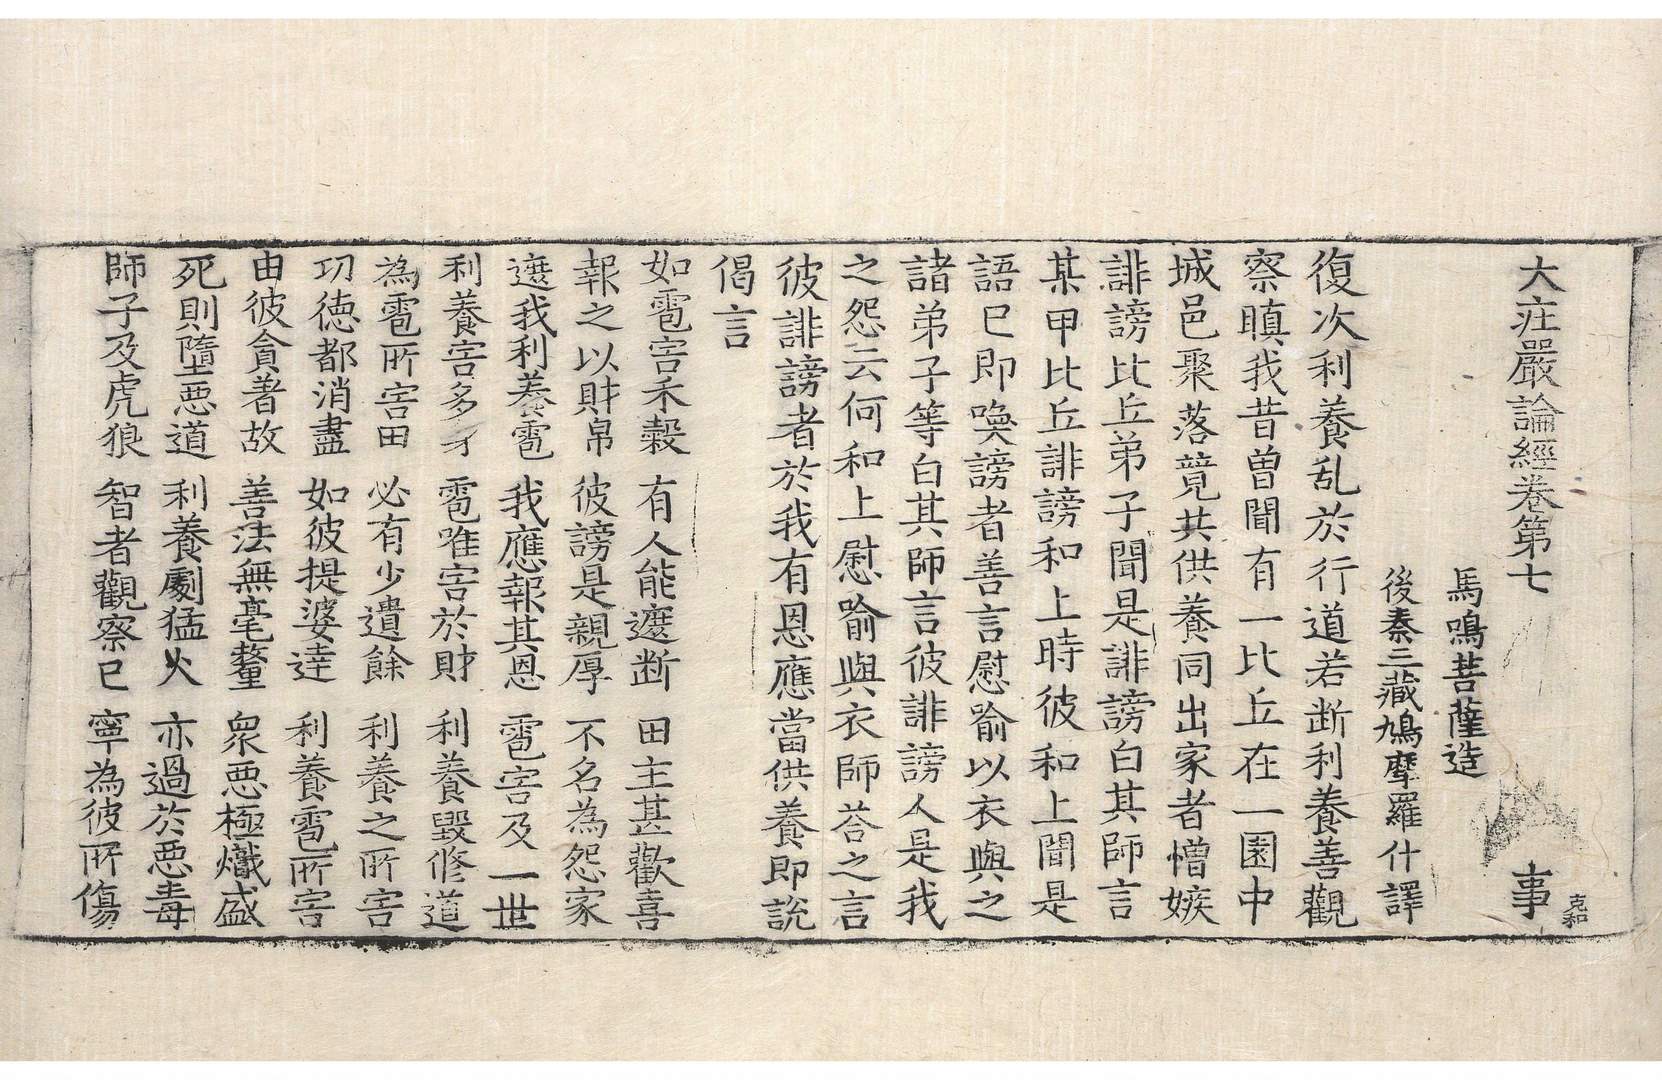 大庄嚴論經卷第七 事
克和
馬鳴菩薩造
後秦三藏鳩摩羅什譯
復次利養乱於行道若断利養善觀
察瞋我昔曽聞有一比丘在一園中
城邑聚落競共供養同出家者憎嫉
誹謗比丘弟子聞是誹謗白其師言
某甲比丘誹謗和上時彼和上聞是
語已即喚謗者善言慰喻以衣與之
諸弟子等白其師言彼誹謗人是我
之怨云何和上慰喻與衣師荅之言
彼誹謗者於我有恩應當供養即說
偈言
如雹害禾穀 有人能遮断 田主甚歡喜
報之以財帛 彼謗是親厚 不名為怨家
遮我利養雹 我應報其恩 雹害及一世
利養害多才 雹唯害於財 利養毀修道
為雹所害田 必有少遺餘 利養之所害
功徳都消盡 如彼提婆達 利養雹所害
由彼貪著故 善法無毫釐 衆惡極熾盛
死則墮惡道 利養劇猛火 亦過於惡毒
師子及虎狼 智者觀察已 寧為彼所傷